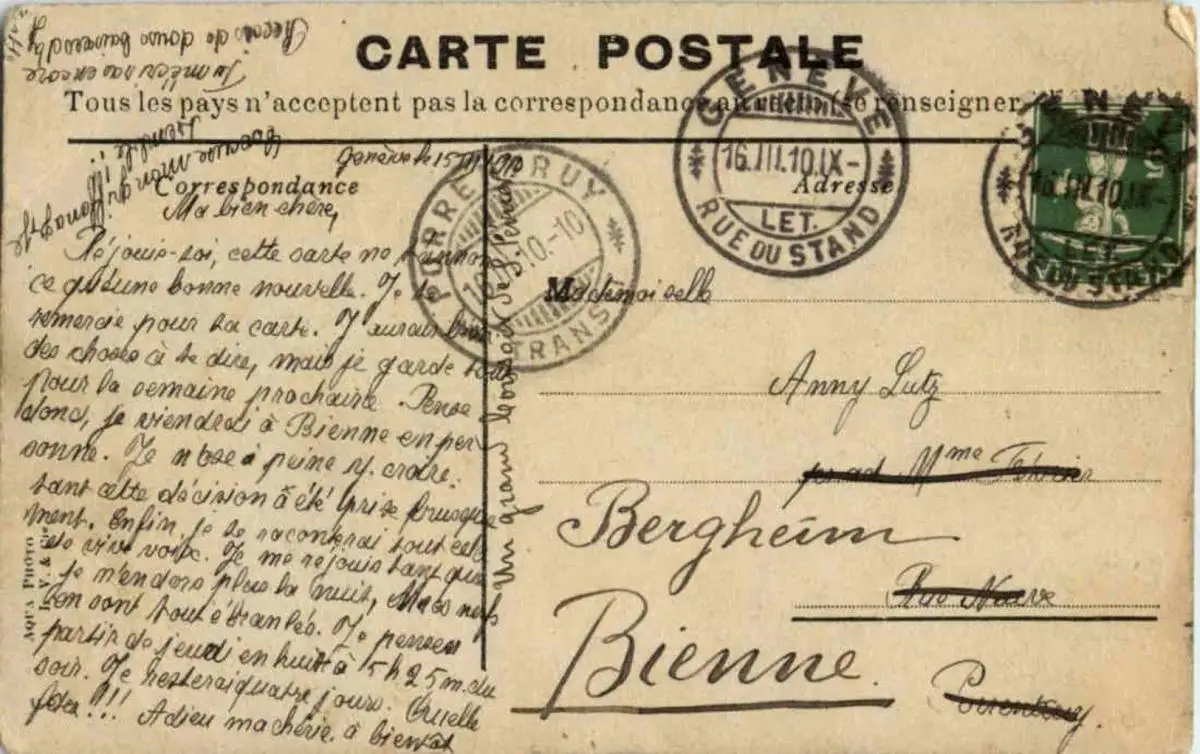 CARTE POSTALE
Tous les pays n'acceptent pas la correspondance au recto (se renseigner
Correspondance
Adresse
Genève le 15 III 1910
Ma bien chère,
Réjouis-toi, cette carte ne t'annon
ce qu'une bonne nouvelle. Je te
remercie pour ta carte. J'aurais bien
des choses à te dire, mais je garde tout
pour la semaine prochaine. Pense
donc, je viendrai à Bienne en per
sonne. Je n'ose à peine y croire.
tant cette décision à été prise brusque
ment. Enfin je te raconterai tout cela
de vive voix. Je me réjouis tant que
je n'endors plus la nuit, Mes nerfs
en sont tout ébranlés. Je pense
partir de jeudi en huit à 5 h 25 m. du
soir. Je resterai quatre jours. Quelle
fête!!! Adieu ma chérie. à bientôt
Reçois de doux baisers de
Tu m'écriras encore
Un grand bonjour de
Mademoiselle
Anny Lutz
Mme Février
Bergheim
Rue Neuve
Bienne.
Porrentruy.
GENEVE
16.III.10.IX-
LET.
RUE DU STAND
GENEVE
16.III.10.IX-
LET.
RUE DU STAND
PORRENTRUY
10-10
TRANS
5
AQUA PHOTO